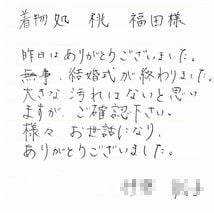 着物処 桃 福田様
昨日はありがとうございました。
無事、結婚式が終わりました。
大きな汚れはないと思い
ますが、ご確認下さい。
様々お世話になり、
ありがとうございました。